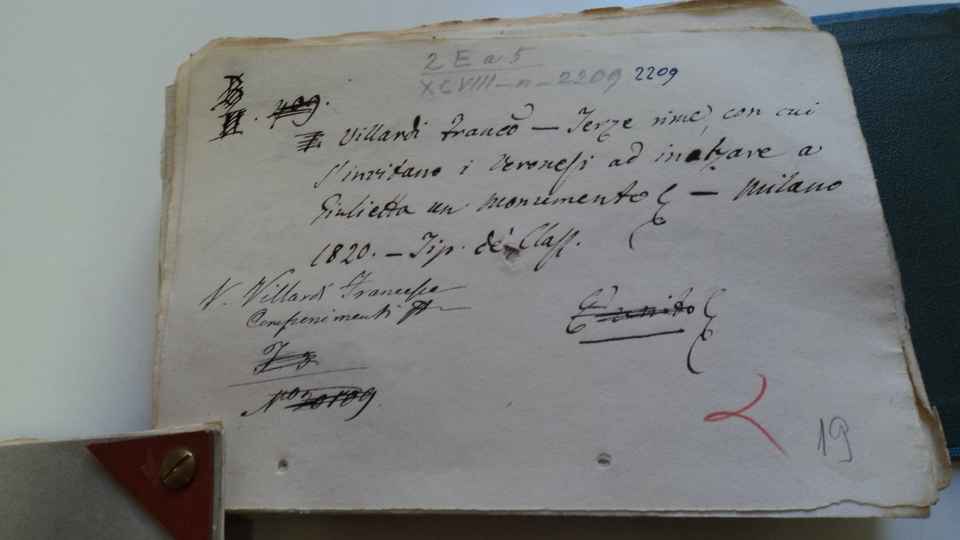 2 E a 5
XCVIII-n-2209 2209
II. 409.
Villardi Franco — Terze rime, con cui
s'invitano i Veronesi ad inalzare a
Giulietta un monumento — Milano
1820. — Tip. de' Class.
V. Villardi Francesco
Componimenti
È unito
19